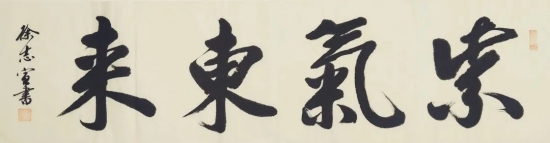 紫氣東来
徐志宣書